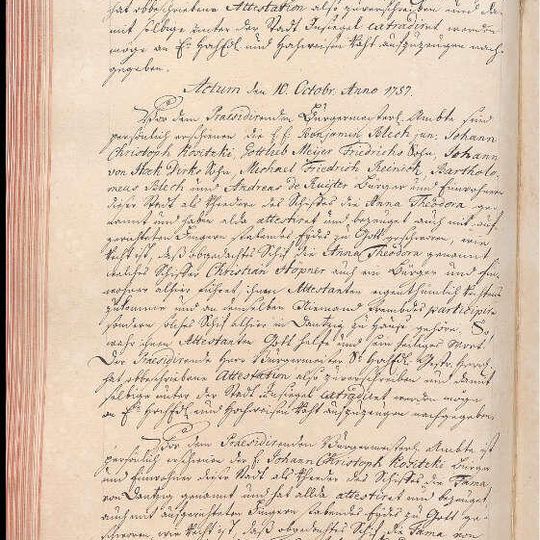 hat obbeschriebene Attestation also zuverschreiben und da-
mit selbige unter der Stadt Insiegel extradiret werden
möge an Er. Hochedl. und Hochweisen Raht auszuzeugen nach-
gegeben.
Actum den 10. Octobr. Anno 1757.
Vor dem Praesidirenden Bürgermeisterl. Ambte sind
persönlich erschienen die E. E. Benjamin Blech jun. Johann
Christoph Kositzki, Gottlieb Meyer Friedrichs Sohn, Johann
von Hoek Dirks Sohn, Michael Friedrich Reinick, Bartholo-
meus Blech und Andreas de Ruijter Bürger und Einwohnere
dieser Stadt als Rheedere des Schiffes die Anna Theodora ge-
nannt und haben alda attestiret und bezeuget auch mit auf-
gerichteten Fingern stebendes Eydes zu Gott geschworen, wie
Raht ist, daß obgedachtes Schif die Anna Theodora genannt
welches Schiffer Christian Höpner auch ein Bürger und Ein-
wohner alhier führet ihnen Attestanten eigenthümlich
zukomme und an demselben Niemand frembdes participire
sondern dieses Schif alhier in Dantzig zu Hause gehöre. So
wahr ihnen Attestanten Gott helfe und sein heiliges Wort!
Der Praesidirende Herr Bürgermeister
hat obbeschriebene Attestation also zuverschreiben und damit
selbige unter der Stadt Insiegel extradiret werden möge
an Er. Hochedl. und Hochweisen Raht auszuzeugen nachgegeben.
Vor dem Praesidirenden Bürgermeisterl. Ambte ist
persönlich erschienen der E. Johann Christoph Kositzki Bürger
und Einwohner dieser Stadt als Rheeder des Schiffes die Fama
von Dantzig genannt und hat allda attestiret und bezeuget
auch mit aufgerichteten Fingern stabendes Eydes zu Gott ge-
schworen, wie Raht ist, daß obgedachtes Schif die Fama von